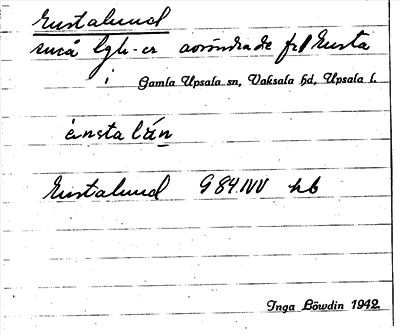 Ensta lund
små lgh-er avsöndrade fr. Ensta
i Gamla Upsala sn, Vaksala hd, Upsala l.
ènstalún
Enstalund G 84 NV hb
Inga Löwdin 1942.